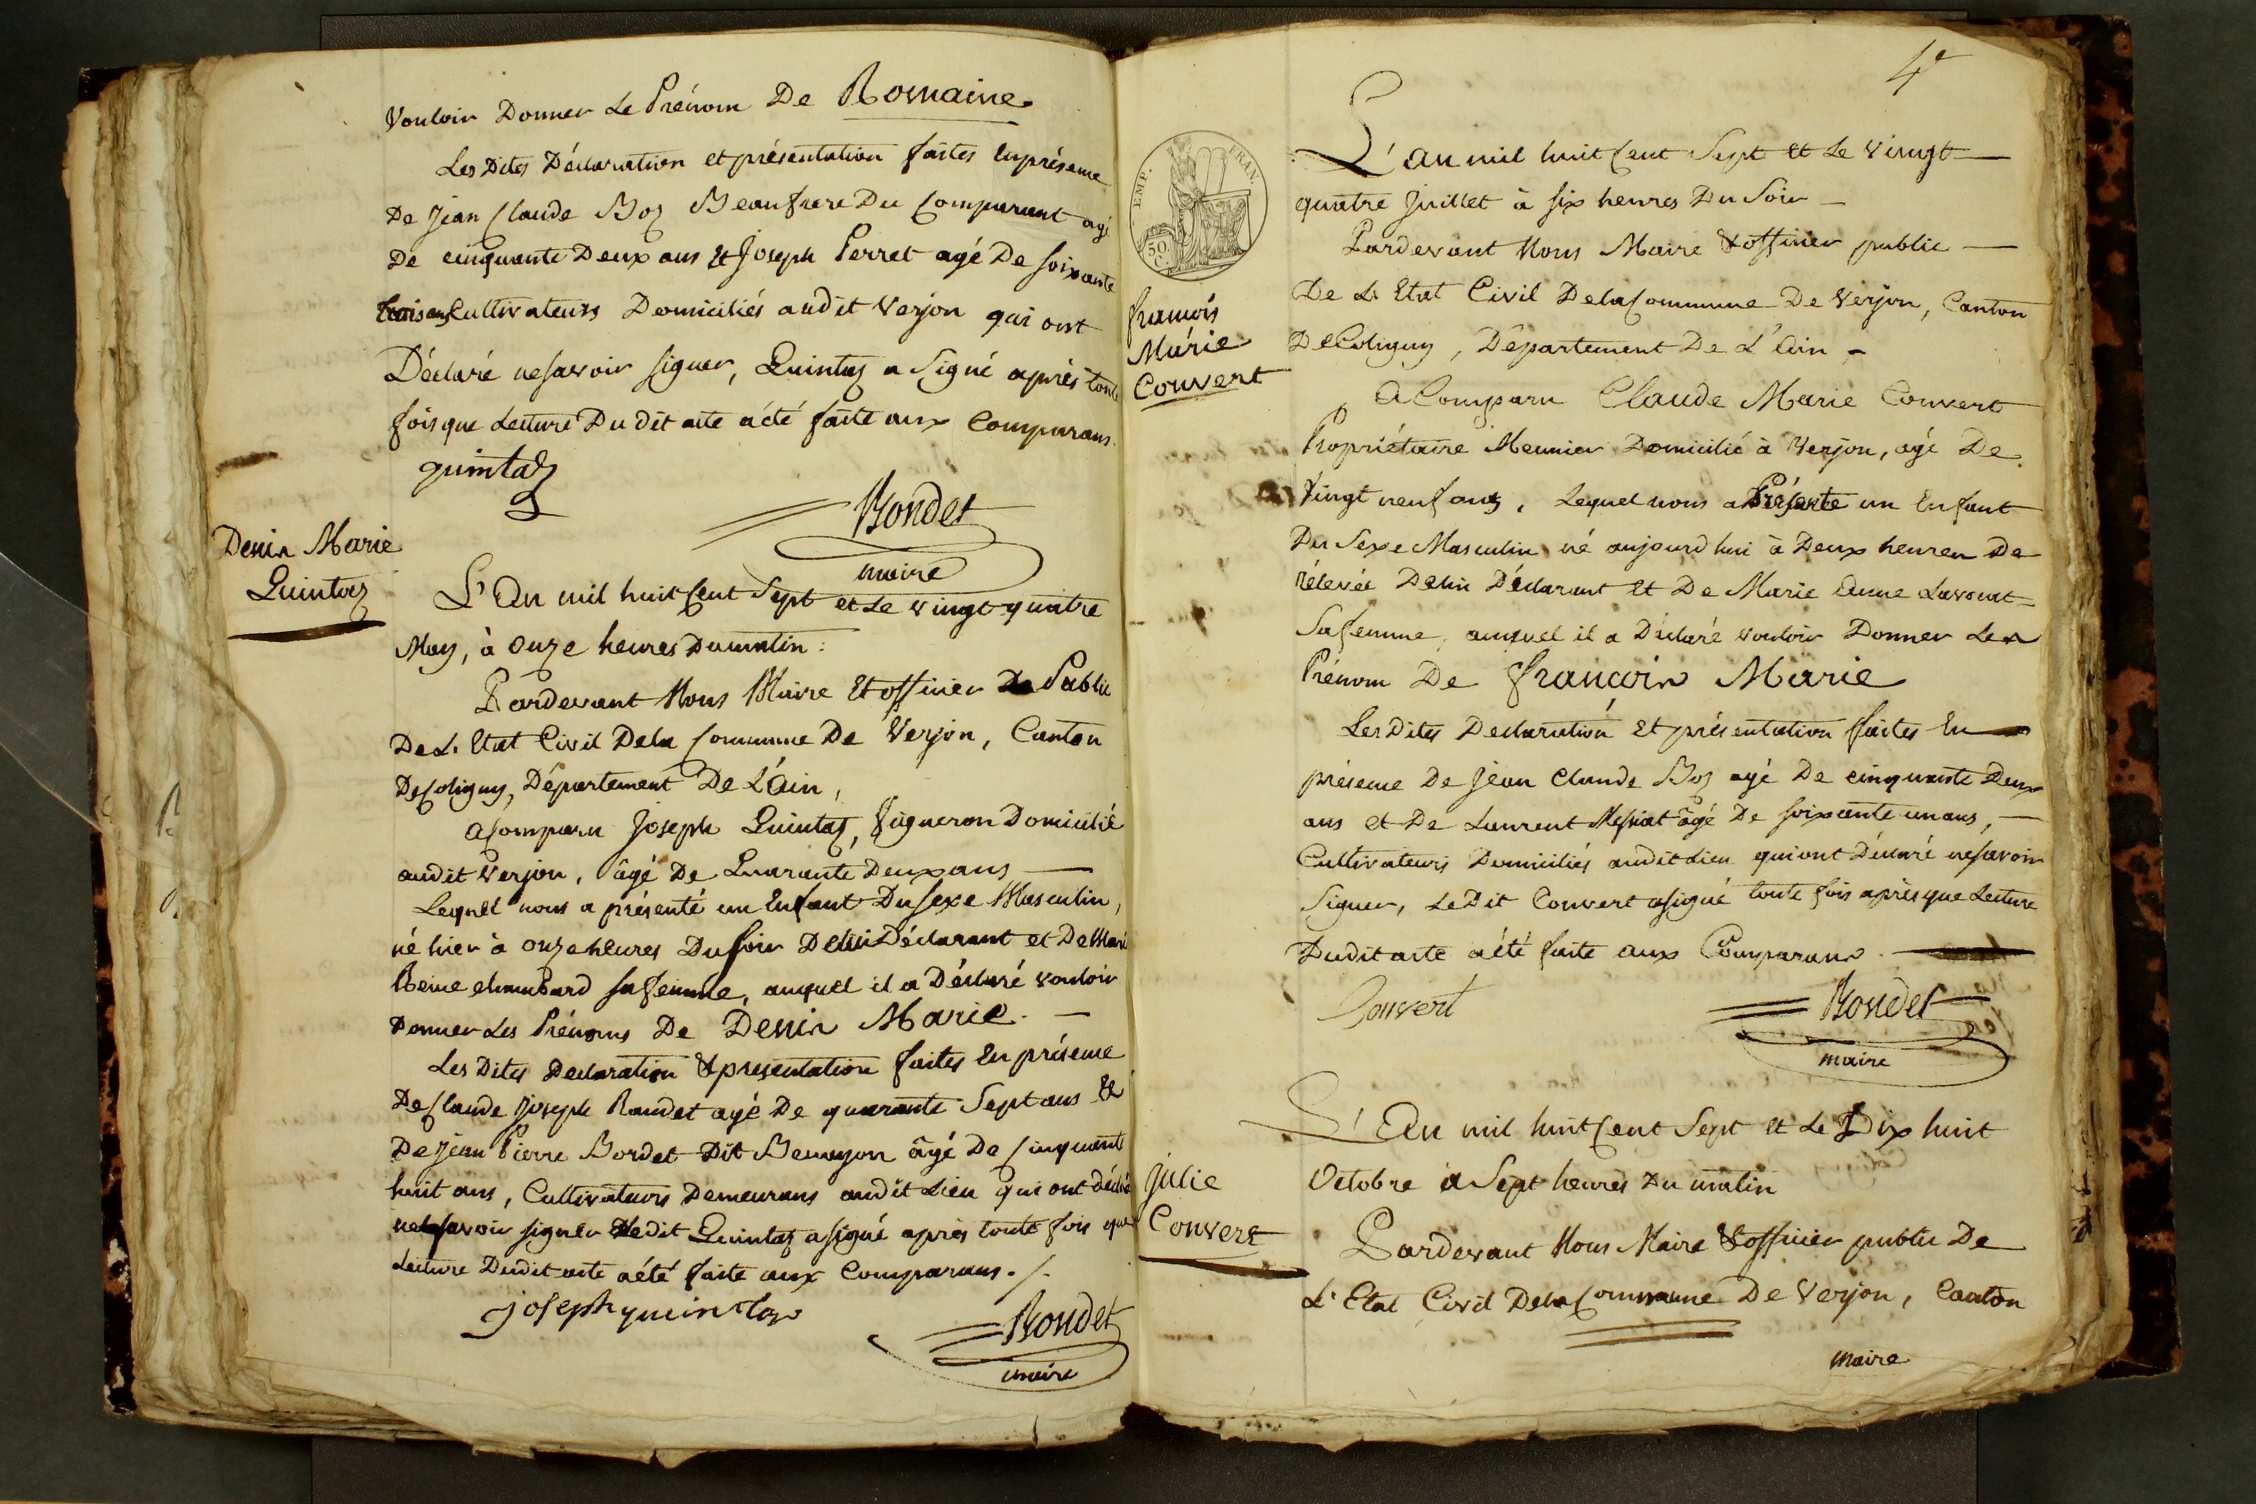 Vouloir Donner Le Prénom De Romaine
Les Dites Déclaration et présentation faites En présence
De Jean Claude Boz Beaufrere Du Comparant agé
De cinquante Deux ans Et Joseph Perret agé De soixante
trois ans Cultivateurs Domiciliés audit Verjon qui ont
Déclaré ne savoir signer, Quintaz a Signé après toute
fois que Lecture Du dit acte a été faite aux Comparans.
quintaz
Rondet
maire
Denis Marie
Quintaz
L'An mil huit Cent Sept et Le vingt quatre
May, à onze heures Du matin :
Pardevant Nous Maire Et officier Public
De L'Etat Civil De la Commune De Verjon, Canton
De Coligny, Département De L'Ain,
a Comparu Joseph Quintaz, Vigneron Domicilié
audit Verjon, âgé De Quarante Deux ans
Lequel nous a présenté un Enfant Du Sexe Masculin,
né hier à onze heures Du soir De lui Déclarant et De Marie
Reine chambard sa femme, auquel il a Déclaré vouloir
Donner Les Prénoms De Denis Marie
Les Dites Declaration & presentation faites En présence
De Claude Joseph Raudet agé De quarante Sept ans Et
De Jean Pierre Bordet Dit âgé De Cinquante
huit ans, Cultivateurs Demeurans audit Lieu qui ont déclaré
ne savoir signer Ledit Quintaz a signé après toute fois que
Lecture Dudit acte a été faite aux Comparans ./.
joseph quintaz
Rondet
maire
4e
EMP. FRAN.
50 C.
françois
Marie
Convert
L'an mil huit Cent Sept et Le Vingt
quatre Juillet à six heures Du Soir
Pardevant Nous Maire & officier public
De L'Etat Civil De la Commune De Verjon, Canton
De Coligny, Département De L'Ain
A Comparu Claude Marie Convert
Propriétaire Meunier Domicilié à Verjon, agé De
Vingt neuf ans, Lequel nous a Présenté un Enfant
Du Sexe Masculin né aujourd'hui à Deux heures De
rélevée De lui Déclarant Et De Marie Anne Lavouat
Sa femme, auquel il a Déclaré vouloir Donner Les
Prénom De françois Marie
Les Dites Declaration Et présentation faites En
présence De Jean Claude Boz agé De cinquante Deux
ans et De Laurent Messiat âgé De soixante un ans,
Cultivateurs Domiciliés audit Lieu qui ont Déclaré ne savoir
Signer, Le Dit Convert a signé toute fois après que Lecture
Dudit acte a été faite aux Comparans.
Convert
Rondet
maire
julie
Convert
L'An mil huit Cent Sept et Le Dix huit
Octobre à Sept heures Du matin
Pardevant Nous Maire & officier public De
L'Etat Civil De la Commune De Verjon, Canton
maire